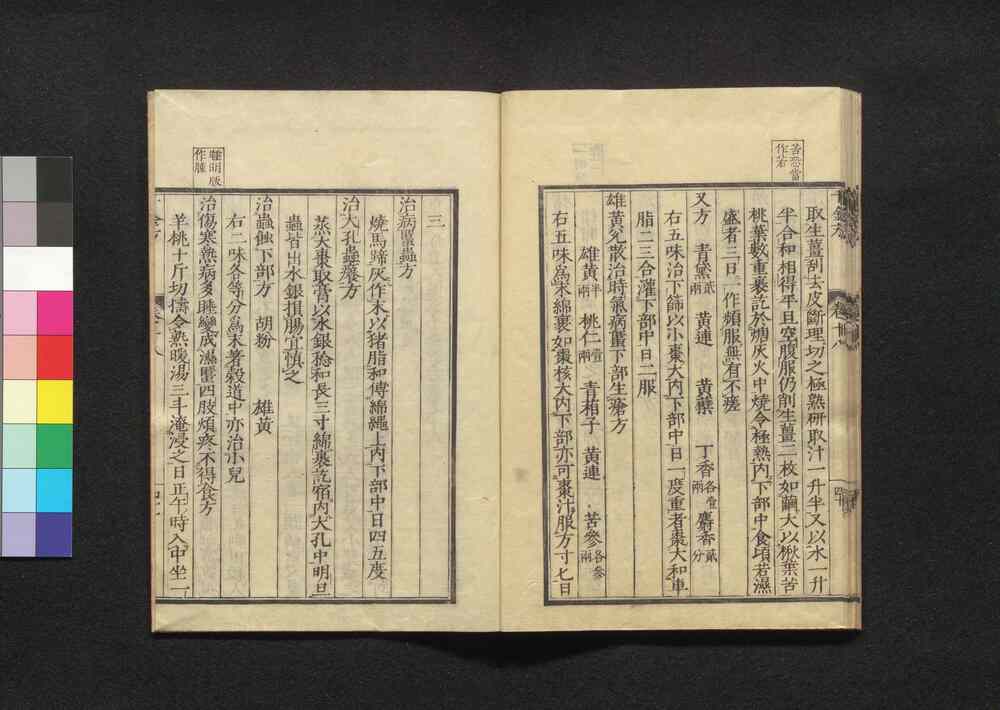 苦恐當
作若
取生薑刮去皮斷理切之極熟研取汁一升半又以水一升
半合和相得平旦空腹服仍削生薑二枚如繭大以楸葉苦
桃葉數重裹訖於煻灰火中燒令極熱內下部中食頃若濕
盛者三日一作頻服無有不瘥
又方 青黛貳兩 黃連 黃蘗 丁香各壹兩 麝香貳分
右五味治下篩以小棗大內下部中日一度重者棗大和車
脂二三合灌下部中日二服
雄黃兌散治時氣病䘌下部生瘡方
雄黃半兩 桃仁壹兩 青葙子 黃連 苦參各參兩
右五味為末綿裹如棗核大內下部亦可棗汁服方寸匕日
三
治病䘌蟲方
燒馬蹄灰作末以猪脂和傅綿繩上內下部中日四五度
治大孔蟲癢方
蒸大棗取膏以水銀稔和長三寸綿裹訖宿內大孔中明旦
蟲皆出水銀損腸宜慎之
治蟲蝕下部方 胡粉 雄黃
右二味各等分為末著穀道中亦治小兒
治傷寒熱病多睡變成濕䘌四肢煩疼不得食方
羊桃十斤切擣令熟暖湯三斗淹浸之日正午時入中坐一
明版
作腫